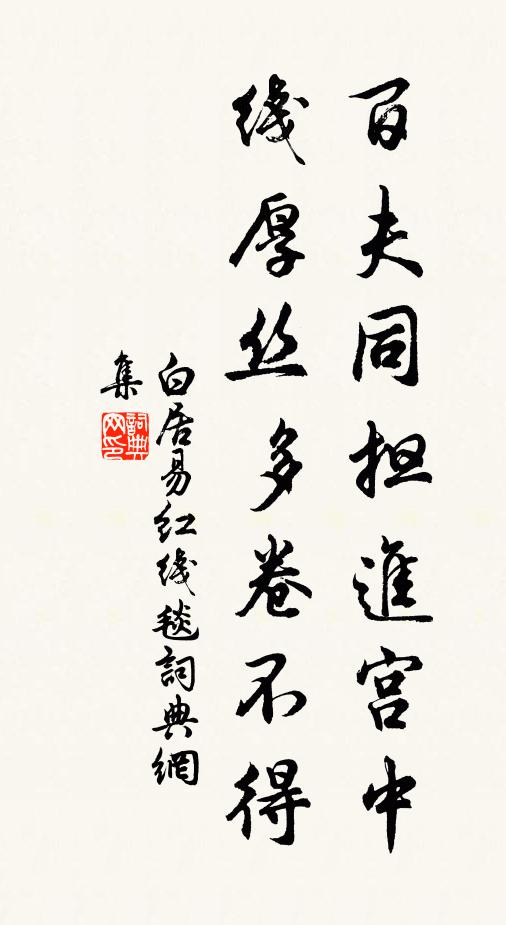 百夫同担進宫中
线厚丝多卷不得
白居易红线毯詞典網
集
詞典
网印